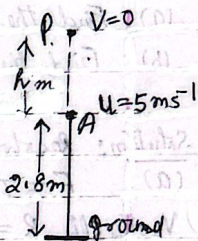 P. V=0
h m
A u=5ms⁻¹
2.8m
ground